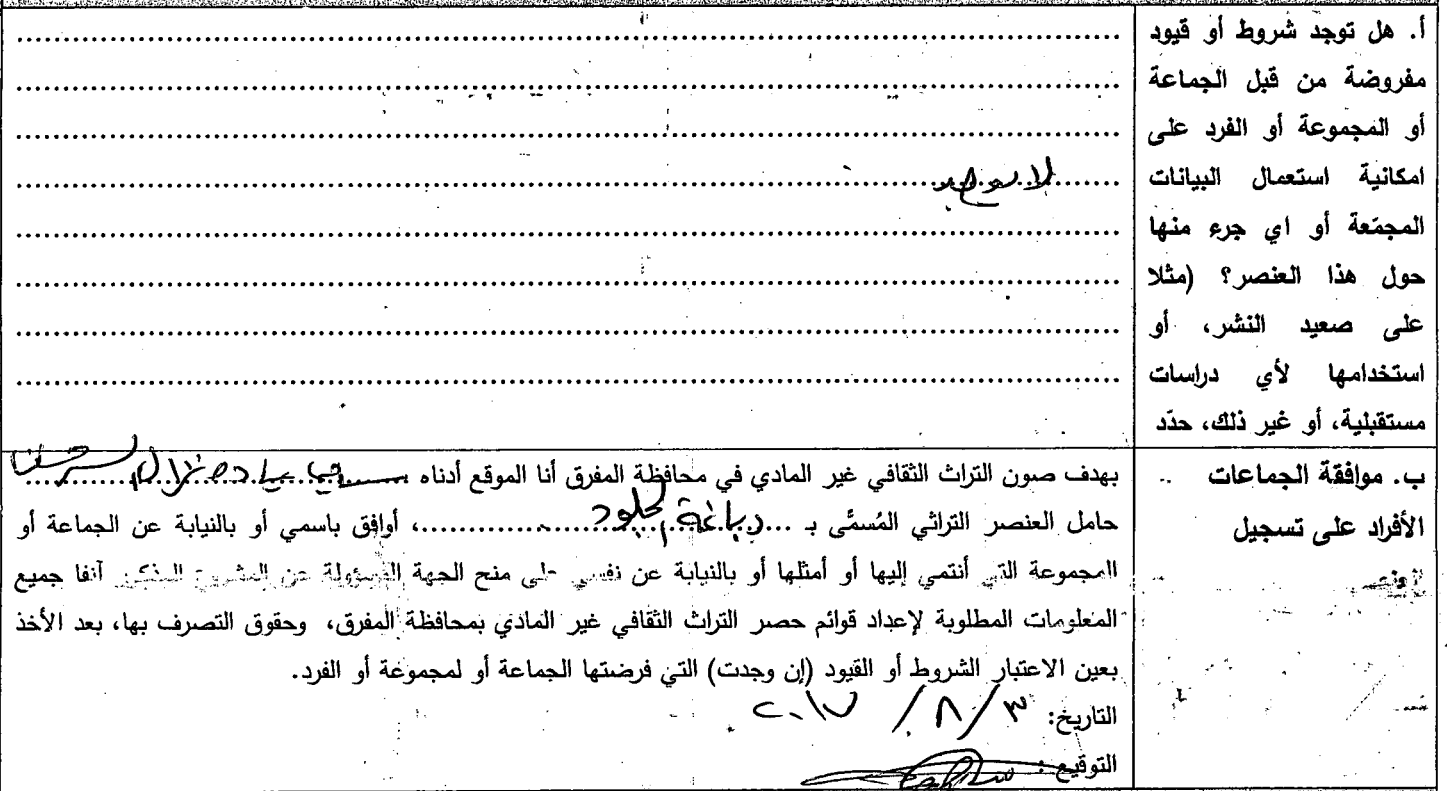 أ. هل توجد شروط أو قيود
مفروضة من قبل الجماعة
أو المجموعة أو الفرد على
امكانية استعمال البيانات
المجمّعة أو اي جرء منها
حول هذا العنصر؟ (مثلا
على صعيد النشر، أو
استخدامها لأي دراسات
مستقبلية، أو غير ذلك، حدّد
لا يوجد
ب. موافقة الجماعات
الأفراد على تسجيل
بهدف صون التراث الثقافي غير المادي في محافظة المفرق أنا الموقع أدناه
حامل العنصر التراثي المُسمَّى بـ ...دباغة الجلود...، أوافق باسمي أو بالنيابة عن الجماعة أو
المجموعة التي أنتمي إليها أو أمثلها أو بالنيابة عن نفسي على منح الجهة المسؤولة عن المشروع المذكور آنفا جميع
المعلومات المطلوبة لإعداد قوائم حصر التراث الثقافي غير المادي بمحافظة المفرق، وحقوق التصرف بها، بعد الأخذ
بعين الاعتبار الشروط أو القيود (إن وجدت) التي فرضتها الجماعة أو لمجموعة أو الفرد.
التاريخ: ٣ / ٨ / ٢٠١٧
التوقيع: